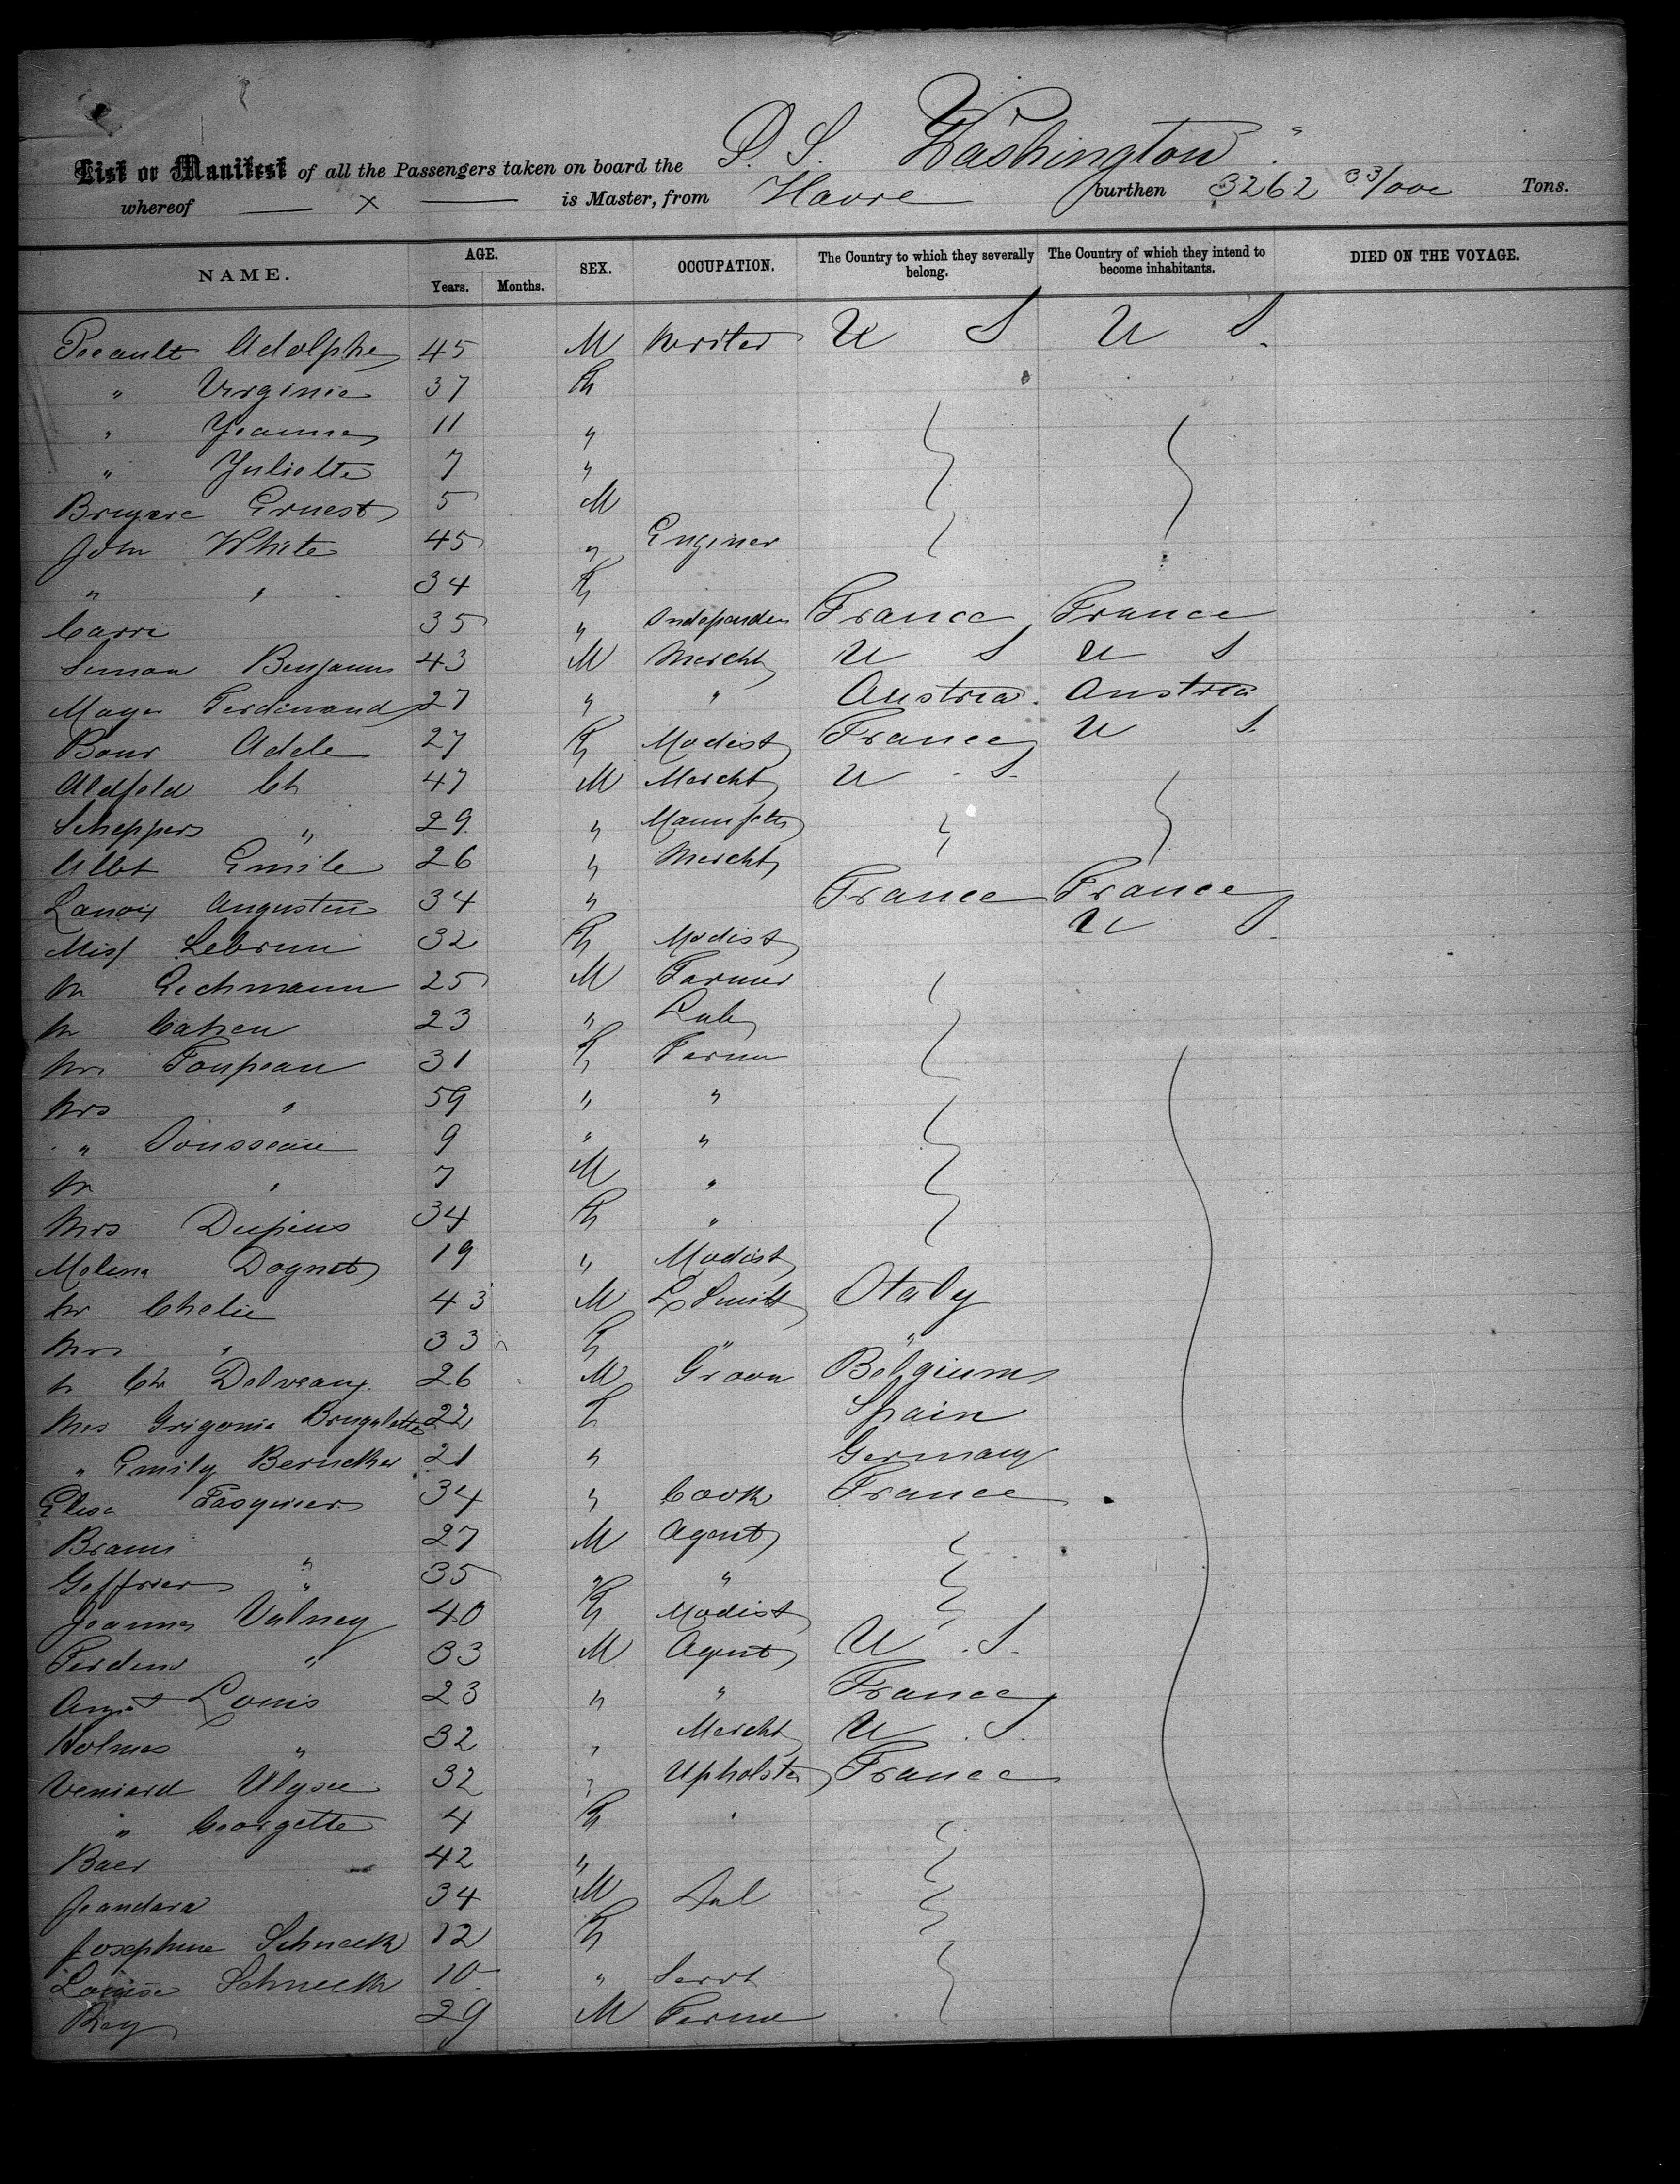 S. S. Washington
List or Manifest of all the Passengers taken on board the
whereof x is Master, from Havre burthen 3262 33/000 Tons.
NAME. AGE. Years. Months. SEX. OCCUPATION. The Country to which they severally belong. The Country of which they intend to become inhabitants. DIED ON THE VOYAGE.
Adolphe 45 M Writer U S U S
" Virginie 37 F
" Jeanne 11 "
" Juliette 7 "
Bruyere Ernest 5 M
John White 45 " Enginer
" " 34 F
Carre 35 " Independen France France
Simon Benjamin 43 M Mercht U S U S
Mayer Ferdinand 27 " " Austria Austria
Bour Adele 27 F Modist France U S
Aldfeld Ch 47 M Mercht U S
Scheppers " 29 "
Albt Emile 26 " Mercht
Lanoix Augustin 34 " France France
Miss Lebrun 32 F Modist U S
Mr Eechmann 25 M Farmer
Mr Cahen 23 "
Mrs Toupeau 31 F Farmer
Mrs " 59 " "
" Dousseau 9 " "
Mr " 7 M "
Mrs Dupius 34 F "
Melina Dognet 19 " Modist
Mr Chelie 43 M L Smith Italy
Mrs " 33 F " "
Mr Ch Delveaux 26 M Groom Belgium
Mrs Grigonia 22 F Spain
" Emily Bernecker 21 " Germany
Elisa Fasquier 34 " Cook France
Braun " 27 M Agent
Geffrier " 35 " "
Jeanne Valney 40 F Modist
Ferdin " 33 M Agent U S
August Louis 23 " " France
Holmes " 32 " Mercht U S
Veniard Ulysee 32 " Upholster France
" Georgette 4 F "
Baer 42 "
Jeandara 34 M
Josephine Schneck 12 F
Louise Schneck 10 " Servt
Rey 29 M Farmer